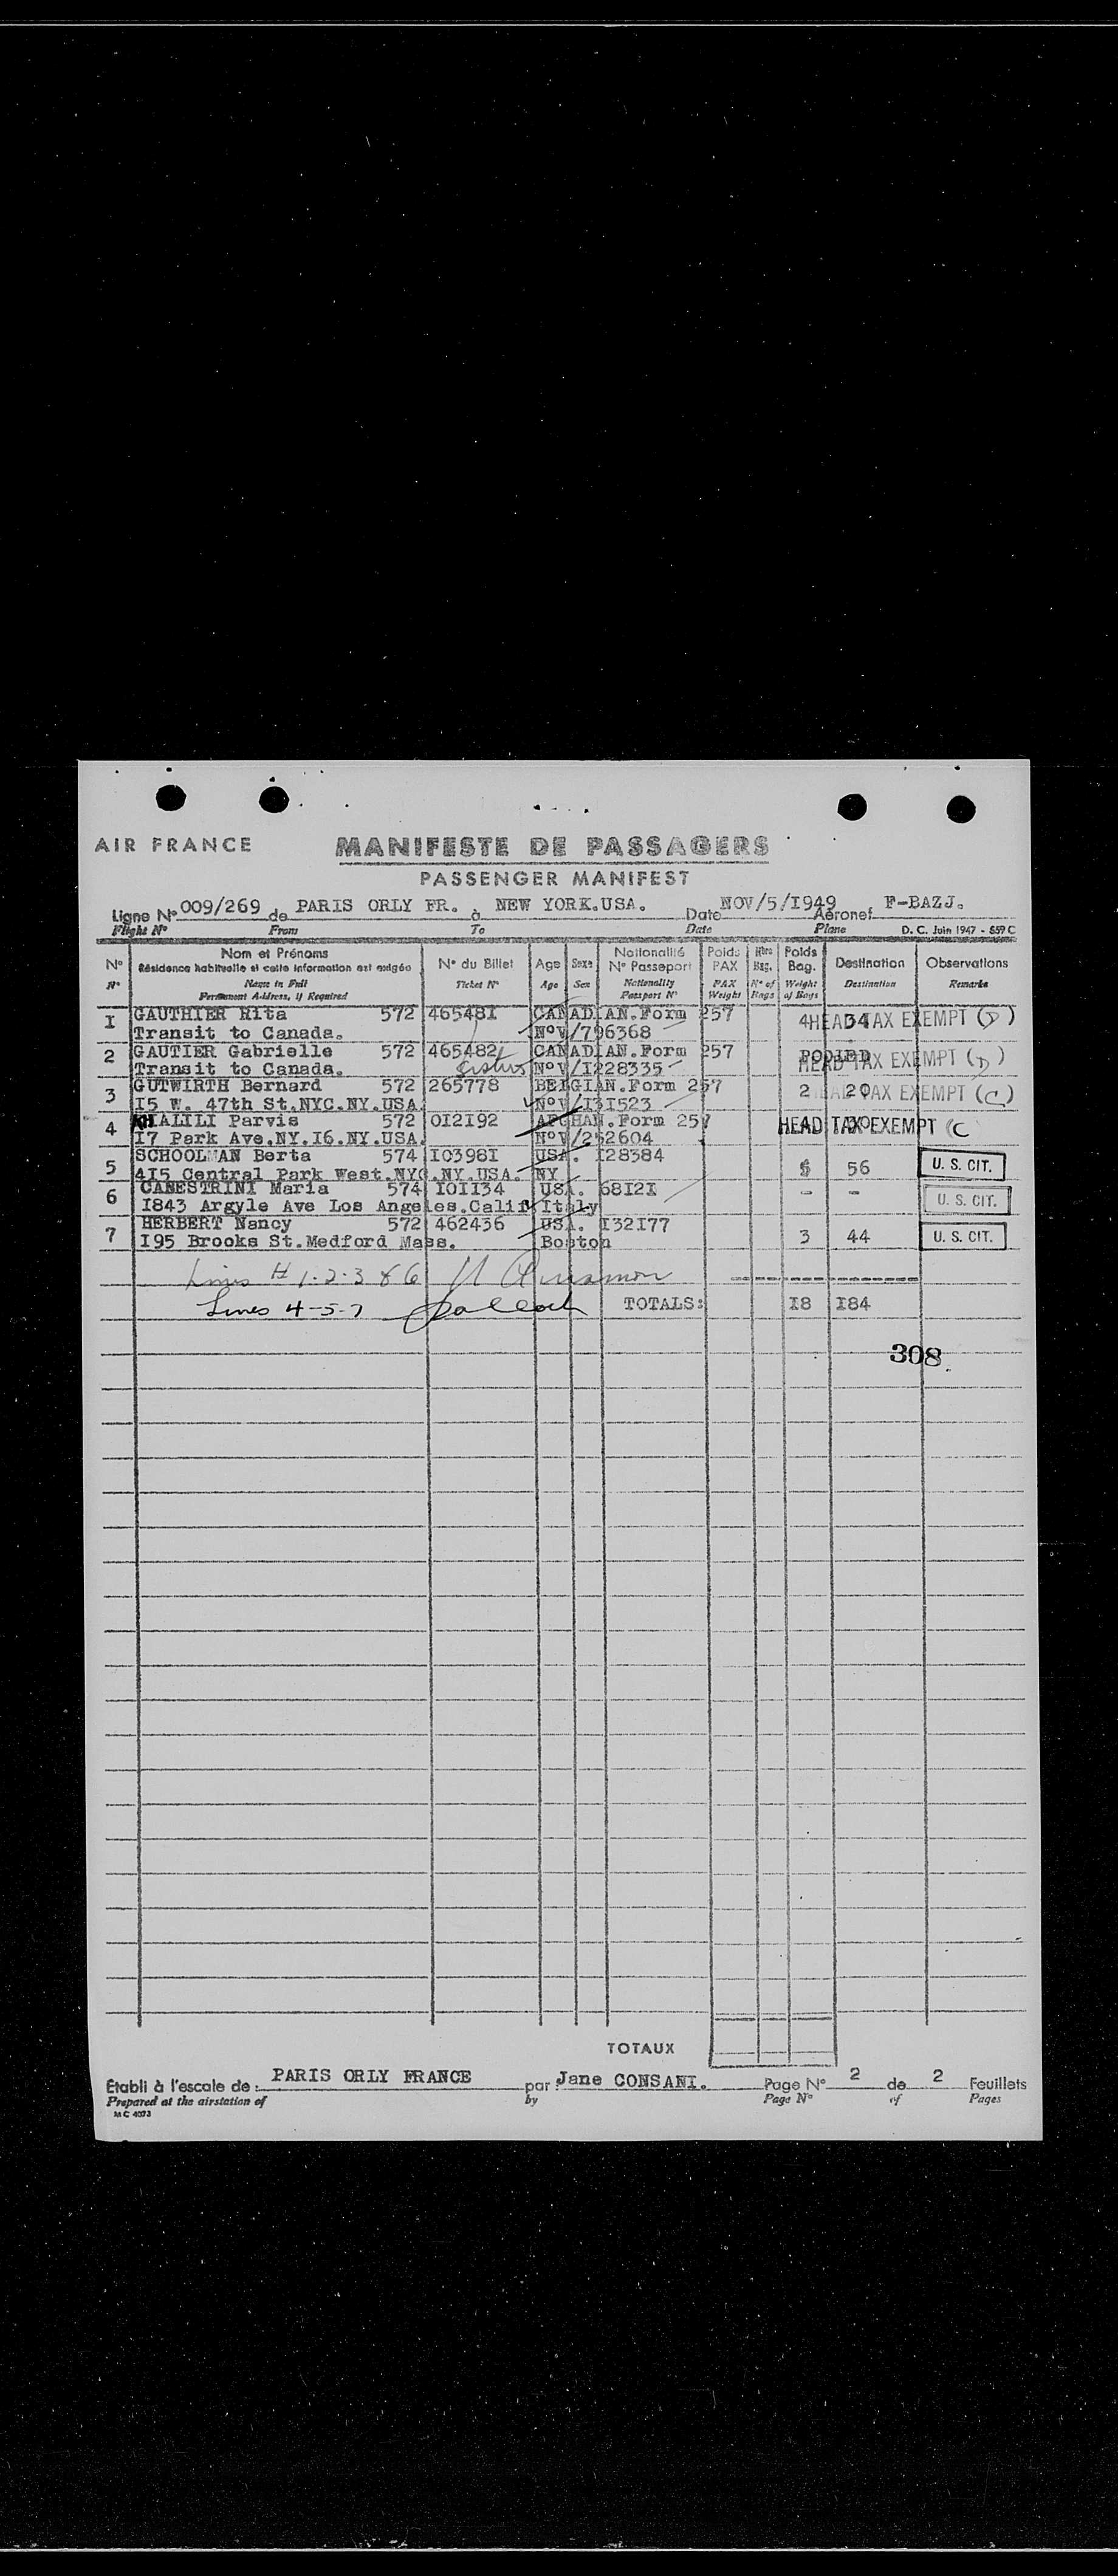 AIR FRANCE
MANIFESTE DE PASSAGERS
PASSENGER MANIFEST
Ligne N° 009/269 de PARIS ORLY FR. à NEW YORK.USA. Date NOV/5/I949 Aéronef F-BAZJ.
Flight N° From To Date Plane D. C. Juin 1947 - 859 C
N° Nom et Prénoms N° du Billet Age Sexe Nationalité Poids Nbre Poids Destination Observations
Résidence habituelle si cette information est exigée N° Passeport PAX Bag. Bag.
N° Name in Full Ticket N° Age Sex Nationality PAX N° of Weight Destination Remarks
Permanent Address, if Required Passport N° Weight Bags of Bags
I GAUTHIER Rita 572 46548I CANADIAN.Form 257 4 34 HEAD TAX EXEMPT (D)
Transit to Canada. N°V/796368
2 GAUTIER Gabrielle 572 465482 CANADIAN.Form 257 POOLED HEAD TAX EXEMPT (D)
Transit to Canada. Sisters N°V/I228335
3 GUTWIRTH Bernard 572 265778 BELGIAN.Form 257 2 20 HEAD TAX EXEMPT (C)
I5 W. 47th St.NYC.NY.USA. N°V/I3I523
4 KHALILI Parvis 572 0I2I92 AFGHAN.Form 257 HEAD TAX EXEMPT (C
I7 Park Ave.NY.I6.NY.USA. N°V/252604
5 SCHOOLMAN Berta 574 I0398I USA. I28384 56 U. S. CIT.
4I5 Central Park West.NYC.NY.USA. NY
6 CANESTRINI Maria 574 I0II34 USA. 68I2I - - U. S. CIT.
I843 Argyle Ave Los Angeles.Calif Italy
7 HERBERT Nancy 572 462436 USA. I32I77 3 44 U. S. CIT.
I95 Brooks St.Medford Mass. Boston
Lines # 1-2-3 & 6
Lines 4-5-7 TOTALS: I8 I84
308
TOTAUX
Établi à l'escale de: PARIS ORLY FRANCE par: Jane CONSANI. Page N° 2 de 2 Feuillets
Prepared at the airstation of by Page N° of Pages
M C 4073